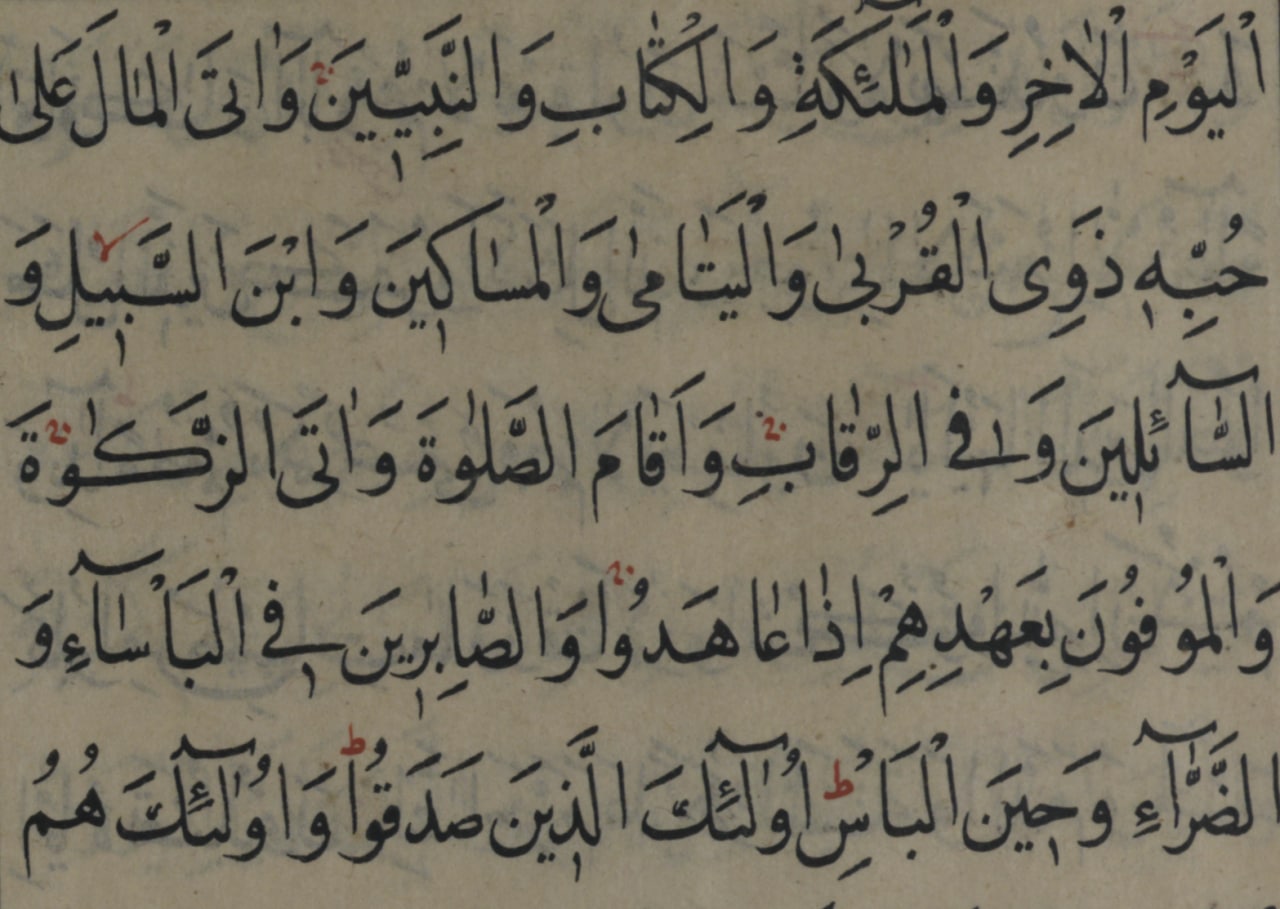 اْليَوْمِ اْلاٰخِرِ وَاْلمَلٰئِكَةِ وَالكِتٰابِ وَالنَّبِيّٖينَ وَاٰتَى اْلمٰالَ عَلىٰ
حُبِّهٖ ذَوِى اْلقُرْبىٰ وَاْليَتٰامىٰ وَاْلمَسٰاكٖينَ وَابْنَ السَّبٖيلِ وَ
السّٰٓائِلٖينَ وَفِى الرِّقٰابِ وَاَقٰامَ الصَّلٰوةَ وَاٰتَى الزَّكٰوةَ
وَاْلمُوفُونَ بِعَهْدِهِمْ اِذٰا عٰاهَدُوْا وَالصّٰابِرٖينَ فٖى اْلبَاْسٰٓاءِ وَ
الضَّرّٰٓاءِ وَحٖينَ اْلبَاْسِ ط اُولٰٓئِكَ الَّذٖينَ صَدَقُوْا ط وَاُولٰٓئِكَ هُمُ